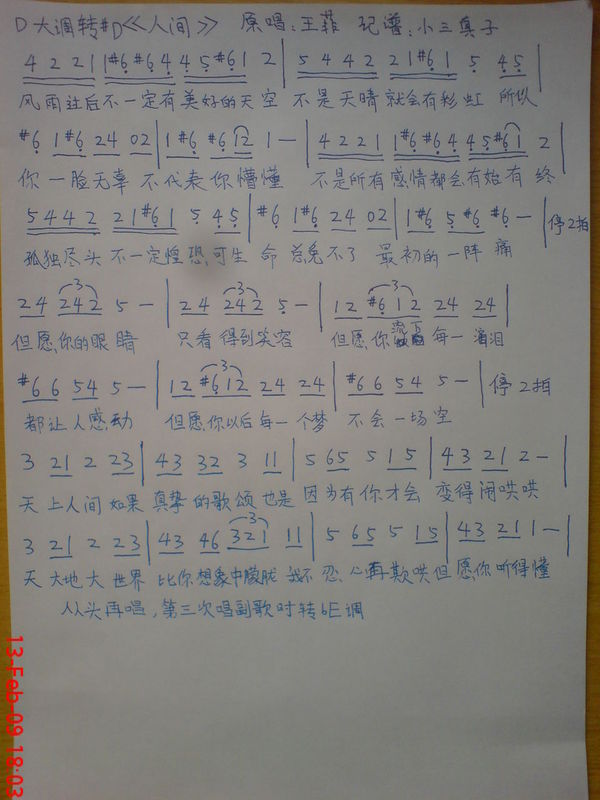 D大调转#D《人间》 原唱:王菲 记谱:小三真子
4 2 2 1 | 1 #6 #6 4 4 5 #6 1 2 | 5 4 4 2 2 1 #6 1 5 4 5 |
风雨过后不一定有美好的天空 不是天晴就会有彩虹 所以
#6 1 #6 2 4 0 2 | 1 #6 #6 1 2 1 — | 4 2 2 1 1 #6 #6 4 4 5 #6 1 2 |
你一脸无辜 不代表你懵懂 不是所有感情都会有始有终
5 4 4 2 2 1 #6 1 5 4 5 | #6 1 #6 2 4 0 2 | 1 #6 5 #6 #6 — | 停2拍
孤独尽头 不一定惶恐可生 命 总免不了 最初的一阵 痛
2 4 2 4 2 5 — | 2 4 2 4 2 5 — | 1 2 #6 1 2 2 4 2 4 |
但愿你的眼睛 只看得到笑容 但愿你流下每一滴泪
#6 6 5 4 5 — | 1 2 #6 1 2 2 4 2 4 | #6 6 5 4 5 — | 停2拍
都让人感动 但愿你以后每一个梦 不会一场空
3 2 1 2 2 3 | 4 3 3 2 3 1 1 | 5 6 5 5 1 5 | 4 3 2 1 2 — |
天上人间如果 真挚的歌颂也是 因为有你才会 变得闹哄哄
3 2 1 2 2 3 | 4 3 4 6 3 2 1 1 1 | 5 6 5 5 1 5 | 4 3 2 1 1 — |
天大地大世界 比你想象中朦胧 我不忍心再欺哄但愿你听得懂
从头再唱,第三次唱副歌时转bE调
13-Feb-09 18:03